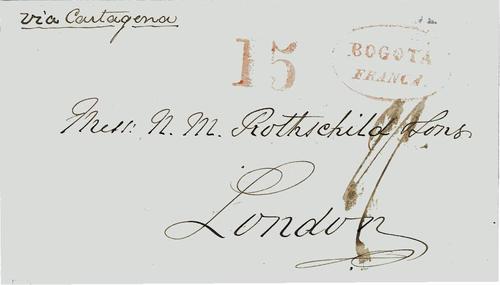 via Cartagena
15
BOGOTA
FRANCA
Mess: N. M. Rothschild Sons
London